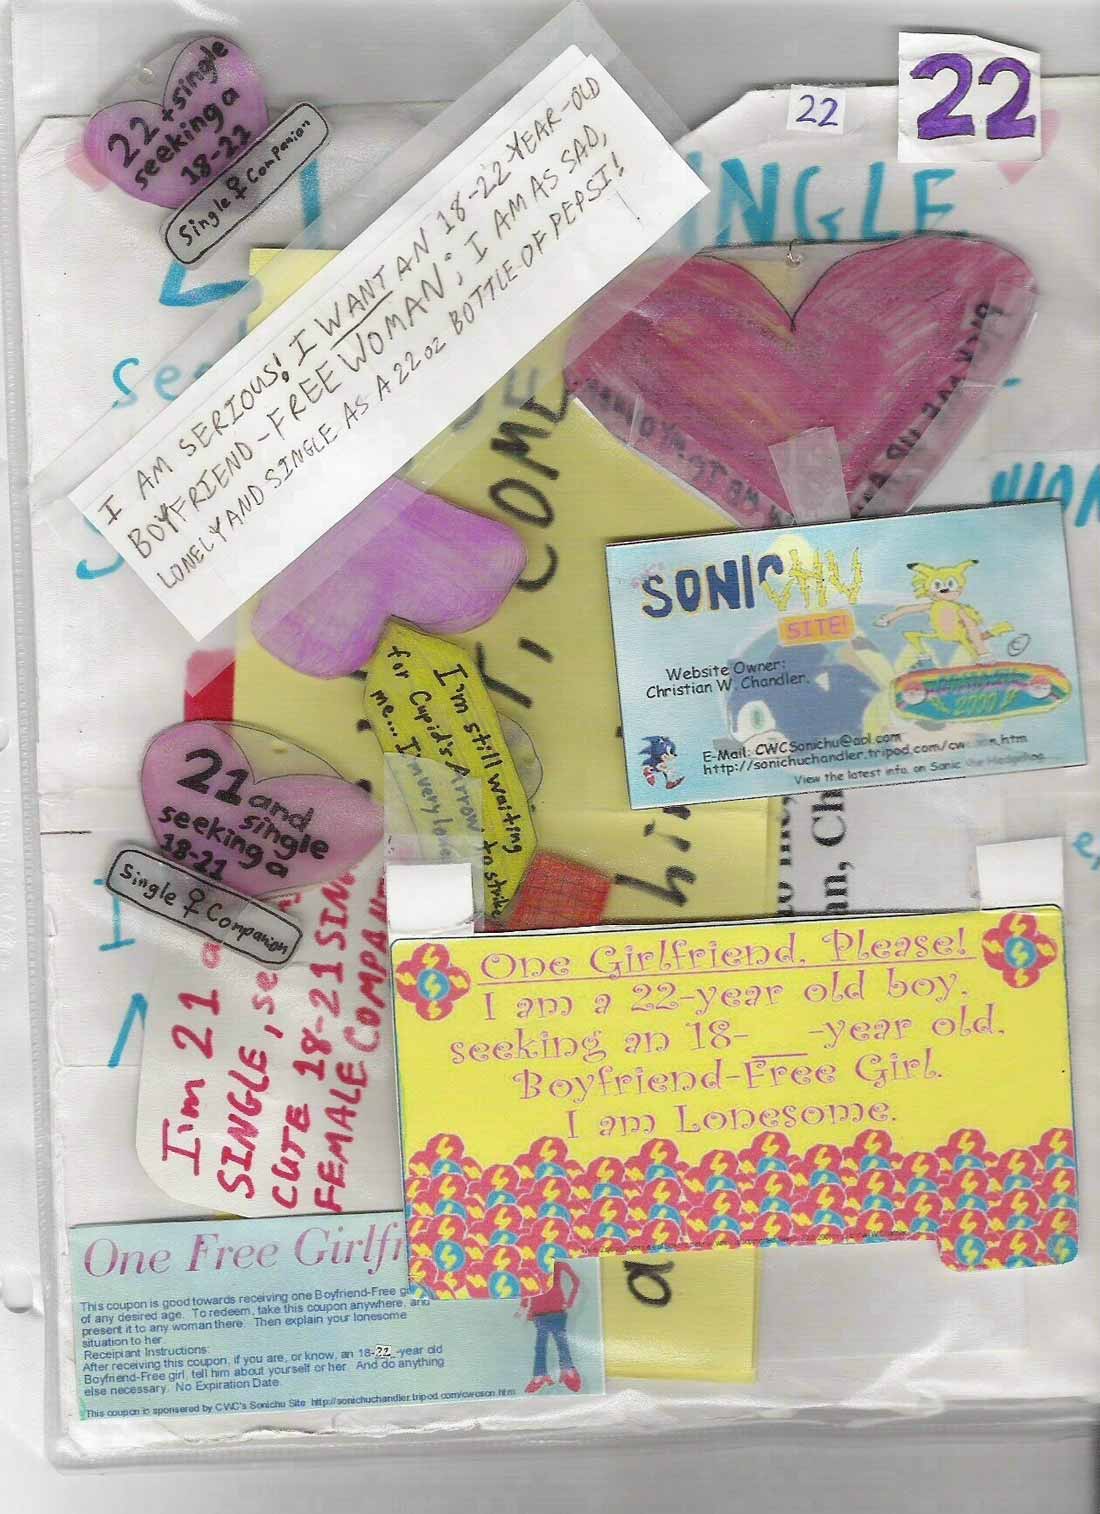 22 + single
seeking a
18-22
Single ♀ Companion
22
22
INGLE
I AM SERIOUS! I WANT AN 18-22-YEAR-OLD
BOYFRIEND-FREE WOMAN; I AM AS SAD,
LONELY AND SINGLE AS A 22 OZ BOTTLE OF PEPSI!
COME
SONICHU
SITE!
Website Owner:
Christian W. Chandler.
E-Mail: CWCSonichu@aol.com
http://sonichuchandler.tripod.com/cw
View the latest info. on Sonic the Hedgehog
I'm still waiting
for Cupid's Arrow to strike
me... I'm very
21 and
single
seeking a
18-21
Single ♀ Companion
I'm 21 a
SINGLE, se
CUTE 18-21 SIN
FEMALE COMPAN
an, Ch
hi
a
One Girlfriend, Please!
I am a 22-year old boy,
seeking an 18-__-year old,
Boyfriend-Free Girl.
I am Lonesome.
One Free Girlfr
This coupon is good towards receiving one Boyfriend-Free g
of any desired age. To redeem, take this coupon anywhere, and
present it to any woman there. Then explain your lonesome
situation to her.
Receipiant Instructions:
After receiving this coupon, if you are, or know, an 18-22-year old
Boyfriend-Free girl, tell him about yourself or her. And do anything
else necessary. No Expiration Date.
This coupon is sponsered by CWC's Sonichu Site http://sonichuchandler.tripod.com/cwcson.htm